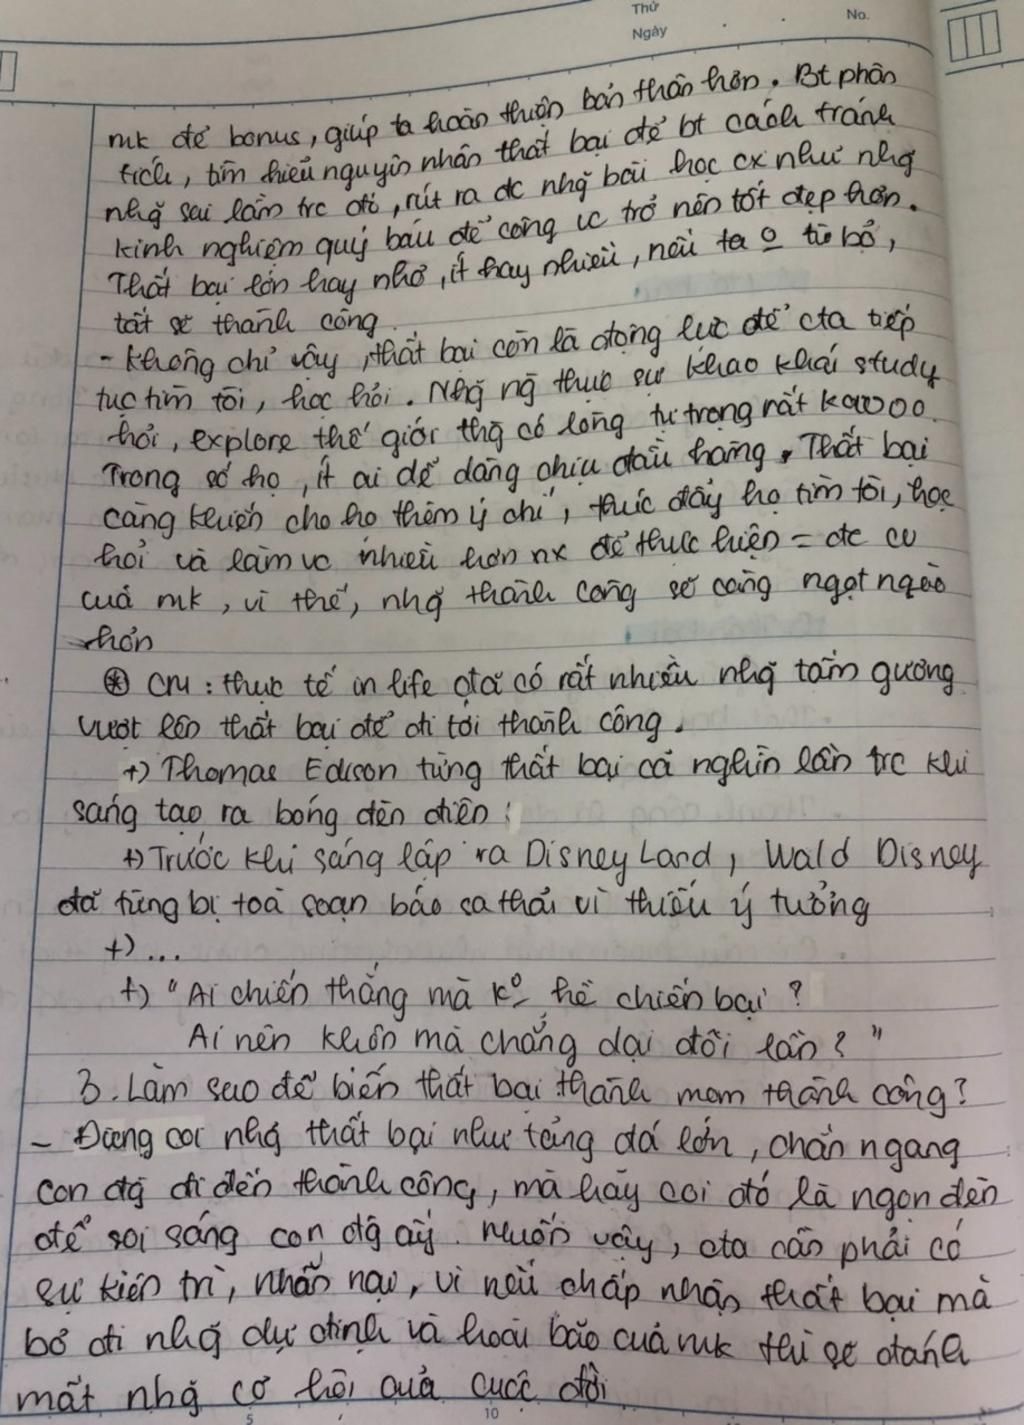 Thứ
Ngày
No.
mk để bonus, giúp ta hoàn thiện bản thân hơn. Bt phân
tích, tìm hiểu nguyên nhân thất bại để bt cách tránh
nhg̃ sai lầm trc đó, rút ra đc nhg̃ bài học cx như nhg̃
kinh nghiệm quý báu để công vc trở nên tốt đẹp hơn.
Thất bại lớn hay nhỏ, ít hay nhiều, nếu ta o từ bỏ,
tất sẽ thành công.
- Không chỉ vậy, thất bại còn là động lực để cta tiếp
tục tìm tòi, học hỏi. Nhg̃ ng thực sự khao khát study
hỏi, explore thế giới thg̀ có lòng tự trọng rất kawoo.
Trong số họ, ít ai dễ dàng chịu đầu hàng. Thất bại
càng khiến cho họ thêm ý chí, thúc đẩy họ tìm tòi, học
hỏi và làm vc nhiều hơn nx để thực hiện = đc
của mk, vì thế, nhg̃ thành công sẽ càng ngọt ngào
hơn
⊛ CM: thực tế in life đã có rất nhiều nhg̃ tấm gương
vượt lên thất bại để đi tới thành công.
+) Thomas Edison từng thất bại cả nghìn lần trc khi
sáng tạo ra bóng đèn điện;
+) Trước khi sáng lập ra DisneyLand, Wald Disney
đã từng bị toà soạn báo sa thải vì thiếu ý tưởng
+) ...
+) "Ai chiến thắng mà ko hề chiến bại?
Ai nên khôn mà chẳng dại đôi lần?"
3. Làm sao để biến thất bại thành mẹ thành công?
- Đừng coi nhg̃ thất bại như tảng đá lớn, chắn ngang
con đg đi đến thành công, mà hãy coi đó là ngọn đèn
để soi sáng con đg ấy. Muốn vậy, cta cần phải có
sự kiên trì, nhẫn nại, vì nếu chấp nhận thất bại mà
bỏ đi nhg̃ dự định và hoài bão của mk thì sẽ đánh
mất nhg̃ cơ hội của cuộc đời
5
10